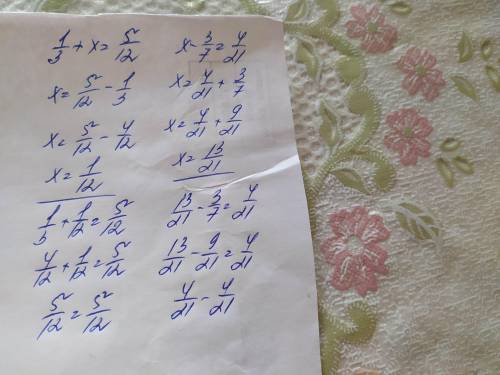 1/3 + x = 5/12
x = 5/12 - 1/3
x = 5/12 - 4/12
x = 1/12
1/3 + 1/12 = 5/12
4/12 + 1/12 = 5/12
5/12 = 5/12
x - 3/7 = 4/21
x = 4/21 + 3/7
x = 4/21 + 9/21
x = 13/21
13/21 - 3/7 = 4/21
13/21 - 9/21 = 4/21
4/21 - 4/21